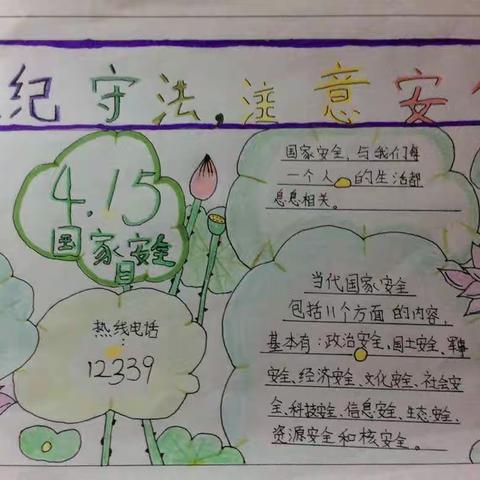 纪守法,注意安全
4.15
国家安全
日
热线电话
:
12339
国家安全,与我们每
一个人的生活都
息息相关。
当代国家安全
包括11个方面的内容,
基本有:政治安全、国土安全、军事
安全、经济安全、文化安全、社会安
全、科技安全、信息安全、生态安全、
资源安全和核安全。